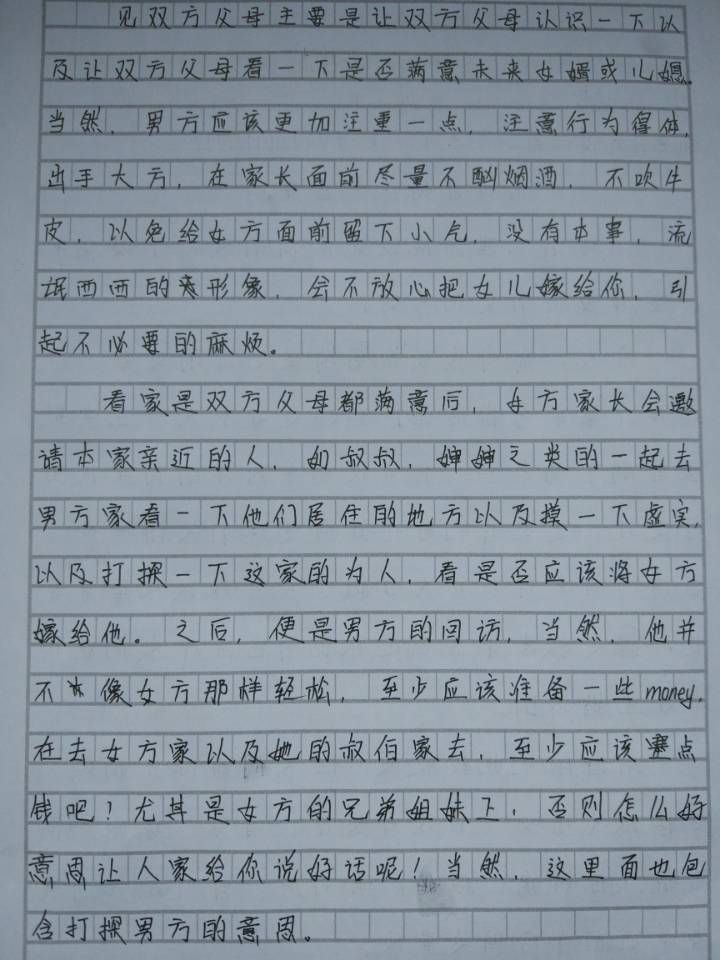 见双方父母主要是让双方父母认识一下以
及让双方父母看一下是否满意未来女婿或儿媳。
当然，男方应该更加注重一点，注意行为得体，
出手大方，在家长面前尽量不酗烟酒，不吹牛
皮，以免给女方面前留下小气，没有本事，流
氓西西的形像，会不放心把女儿嫁给你，引
起不必要的麻烦。
看家是双方父母都满意后，女方家长会邀
请本家亲近的人，如叔叔，婶婶之类的一起去
男方家看一下他们居住的地方以及摸一下虚实，
以及打探一下这家的为人，看是否应该将女方
嫁给他。之后，便是男方的回访，当然，他并
不像女方那样轻松，至少应该准备一些money，
在去女方家以及她的叔伯家去，至少应该塞点
钱吧！尤其是女方的兄弟姐妹上，否则怎么好
意思让人家给你说好话呢！当然，这里面也包
含打探男方的意思。